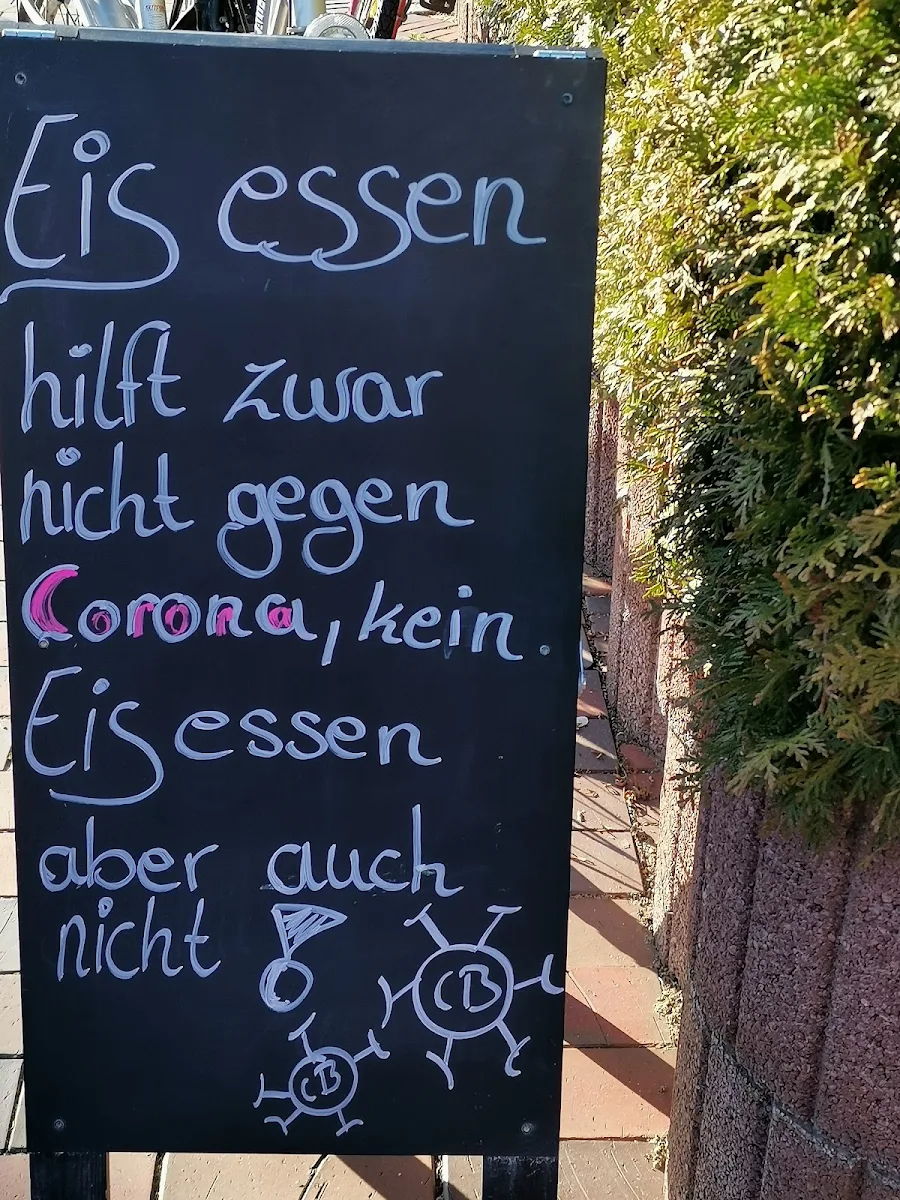 Eis essen
hilft zwar
nicht gegen
Corona, kein
Eis essen
aber auch
nicht !
CB
CB